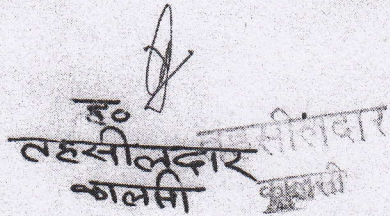 ह०
तहसीलदार
कालसी
तहसीलदार
कालसी